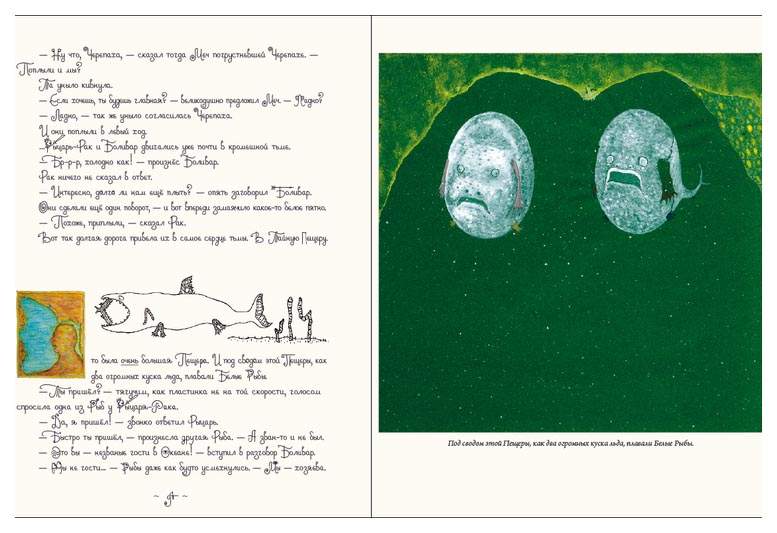 — Ну что, Черепаха, — сказал тогда Меч погрустневшей Черепахе. —
Поплыли и мы?
Та уныло кивнула.
— Если хочешь, ты будешь главная? — великодушно предложил Меч. — Ладно?
— Ладно, — так же уныло согласилась Черепаха.
И они поплыли в левый ход.
Рыцарь-Рак и Боливар двигались уже почти в кромешной тьме.
— Бр-р-р, холодно как! — произнёс Боливар.
Рак ничего не сказал в ответ.
— Интересно, долго ли нам ещё плыть? — опять заговорил Боливар.
Они сделали ещё один поворот, — и вот впереди замаячило какое-то белое пятно.
— Похоже, приплыли, — сказал Рак.
Вот так долгая дорога привела их в самое сердце тьмы. В Тайную Пещеру.
то была очень большая Пещера. И под сводом этой Пещеры, как
два огромных куска льда, плавали Белые Рыбы.
— Ты пришёл? — тягучим, как пластинка не на той скорости, голосом
спросила одна из Рыб у Рыцаря-Рака.
— Да, я пришёл! — звонко ответил Рыцарь.
— Быстро ты пришёл, — произнесла другая Рыба. — А зван-то и не был.
— Это вы — незваные гости в Океане! — вступил в разговор Боливар.
— Мы не гости... — Рыбы даже как будто усмехнулись. — Мы — хозяева.
Под сводом этой Пещеры, как два огромных куска льда, плавали Белые Рыбы.